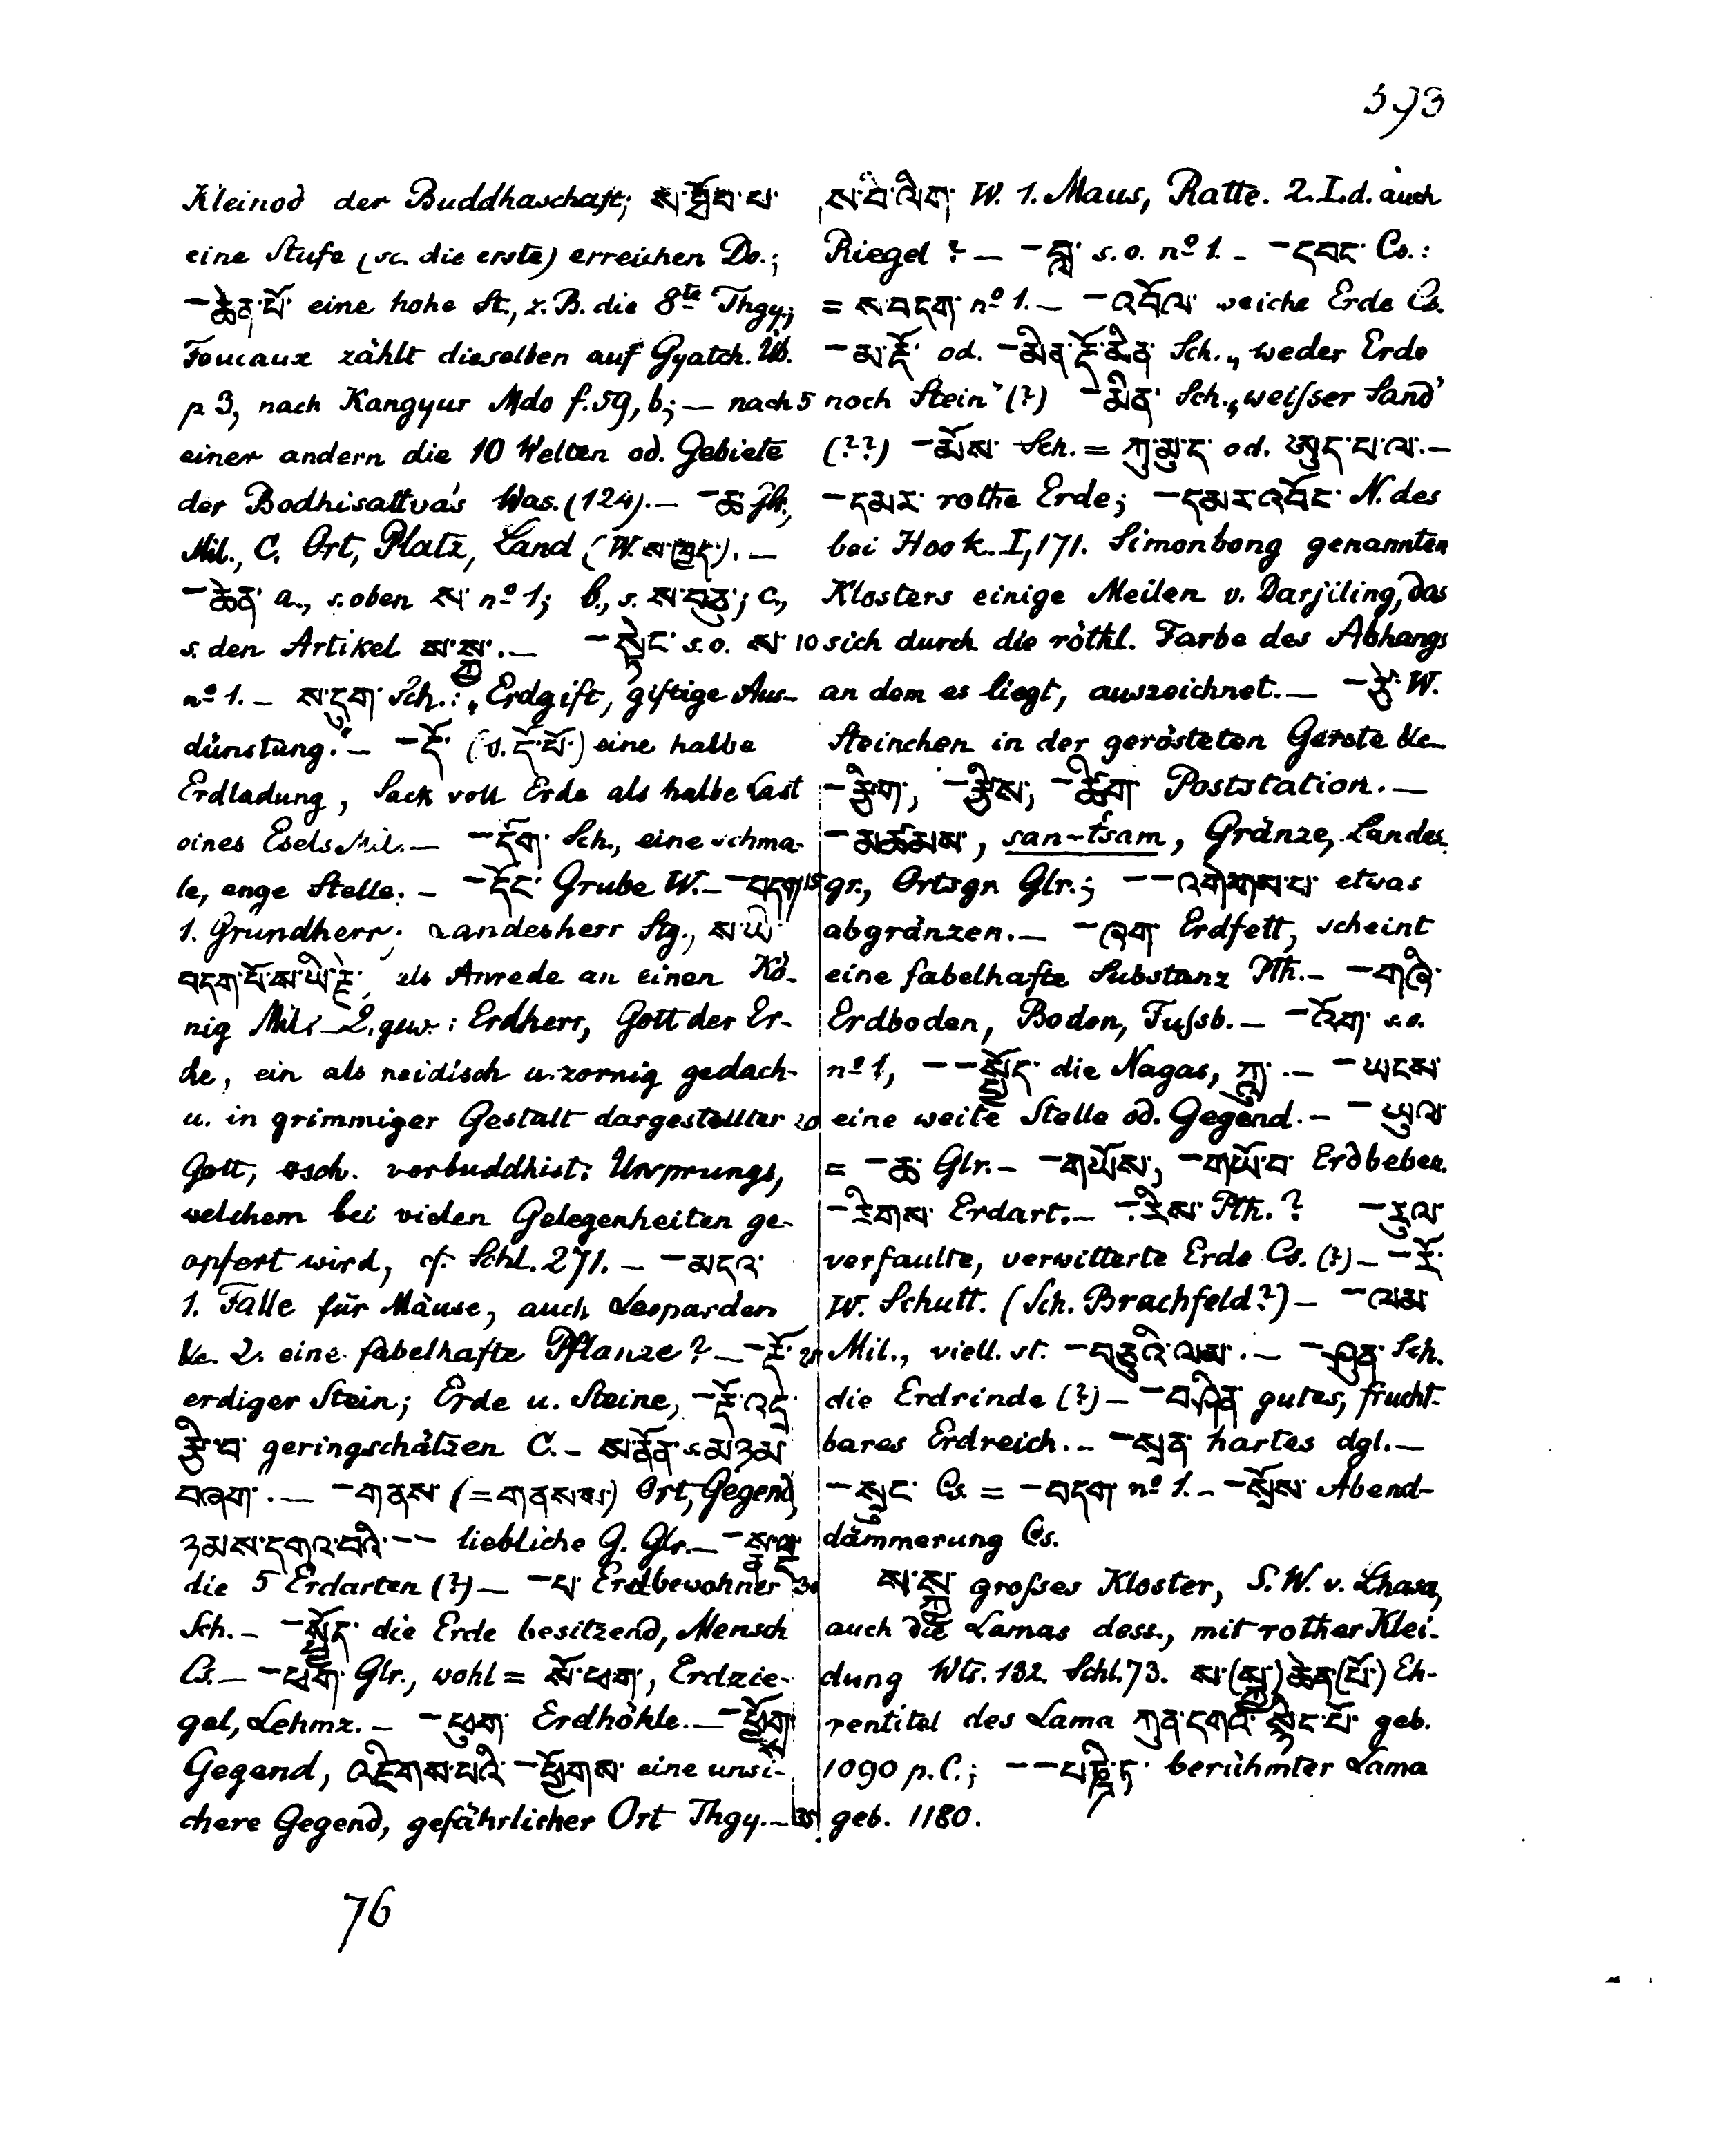 593
Kleinod der Buddhaschaft; ས་ཐོབ་པ་
eine Stufe (sc. die erste) erreichen Do.;
–ཆེན་པོ་ eine hohe St., z. B. die 8te Thgy.;
Foucaux zählt dieselben auf Gyatch. Üb.
p 3, nach Kangyur Mdo f. 59, b; — nach 5
einer andern die 10 Welten od. Gebiete
der Bodhisattva's Was. (124). — –ཆ
Mil., C. Ort, Platz, Land (W. ས་ཁྱད་). —
–ཆེན་ a., s. oben ས་ nº 1; b., s. ས་བཅུ་; c.,
s. den Artikel ས་སྐྱ་. — –སྟེང་ s. o. ས་ 10
nº 1. — ས་དུག་ Sch.: „Erdgift, giftige Aus-
dünstung." — –དོ་ (v. དོ་པོ་) eine halbe
Erdladung, Sack voll Erde als halbe Last
eines Esels Mil. — –དོག་ Sch., eine schma-
le, enge Stelle. — –དོང་ Grube W. — –བདག་ 15
1. Grundherr, Landesherr Stg., ས་ཡི་
བདག་པོ་ས་ཡི་རྗེ་, als Anrede an einen Kö-
nig Mil. — 2. gew.: Erdherr, Gott der Er-
de, ein als neidisch u. zornig gedach-
u. in grimmiger Gestalt dargestellter 20
Gott, vorbuddhist. Ursprungs,
welchem bei vielen Gelegenheiten ge-
opfert wird, cf. Schl. 271. — –མདའ་
1. Falle für Mäuse, auch Leoparden
&c. 2. eine fabelhafte Pflanze? — –རྡོ་ 25
erdiger Stein; Erde u. Steine, –རྡོ་འདྲ་
རྩི་བ་ geringschätzen C. — ས་ནོན་ s. མཉམ་
བཞག་. — –གནས་ (=གནས་ས་) Ort, Gegend,
ཉམས་དགའ་བའི་ – – liebliche G. Glr. — –སྣ་ལྔ་
die 5 Erdarten (?) — –པ་ Erdbewohner 30
Sch. — –སྤྱོད་ die Erde besitzend, Mensch
Cs. — –ཕག་ Glr., wohl = སོ་ཕག་, Erdzie-
gel, Lehmz. — –ཕུག་ Erdhöhle. — –ཕྱོགས་
Gegend, འཇིགས་པའི་ –ཕྱོགས་ eine unsi-
chere Gegend, gefährlicher Ort Thgy. — 35
76
ས་བི་ལིག་ W. 1. Maus, Ratte. 2. I. d. auch
Riegel? — –བླ་ s. o. nº 1. — –དབང་ Cs.:
= ས་བདག་ nº 1. — –འབོལ་ weiche Erde Cs.
–མ་རྡོ་ od. –མིན་རྡོ་མིན་ Sch. „weder Erde
noch Stein" (?) –མིན་ Sch. „weisser Sand"
(??) –མོས་ Sch. = ཀུ་མུ་ད་ od. ཨུད་པ་ལ་. —
–དམར་ rothe Erde; –དམར་འབོང་ N. des
bei Hook. I, 171. Simonbong genannten
Klosters einige Meilen v. Darjiling, das
sich durch die röthl. Farbe des Abhangs
an dem es liegt, auszeichnet. — W.
Steinchen in der gerösteten Gerste &c. —
–ཚིག་, –ཚིས་, –ཚོག་ Poststation. —
–མཚམས་, san-tsam, Gränze, Landes
gr., Ortsgr. Glr.; – –འགེགས་པ་ etwas
abgränzen. — –ཞག་ Erdfett, scheint
eine fabelhafte Substanz Pth. — –གཞི་
Erdboden, Boden, Fussb. — –འོག་ s. o.
nº 1, – –སྤྱོད་ die Nagas, ཀླུ་. — –ཡངས་
eine weite Stelle od. Gegend. — –ཡུལ་
= –ཆ་ Glr. — –གཡོས་, –གཡོ་བ་ Erdbeben.
–རིགས་ Erdart. — –རིས་ Pth.? –རུལ་
verfaulte, verwitterte Erde Cs. (?) — –རོ་
W. Schutt. (Sch. Brachfeld?) — –ལམ་
Mil., viell. st. –བཅུའི་ལམ་. — –ཤུན་ Sch.
die Erdrinde (?) — –བཤིན་ gutes, frucht-
bares Erdreich. — –སྲན་ hartes dgl. —
–སྲུང་ Cs. = –བདག་ nº 1. — –སྲོས་ Abend-
dämmerung Cs.
ས་སྐྱ་ grosses Kloster, S. W. v. Lhasa,
auch die Lamas dess., mit rother Klei-
dung Wts. 132. Schl. 73. ས་(སྐྱ་)ཆེན་(པོ་) Eh-
rentitel des Lama ཀུན་དགའ་སྙིང་པོ་ geb.
1090 p. C.; – –པཎྜི་ཏ་ berühmter Lama
geb. 1180.